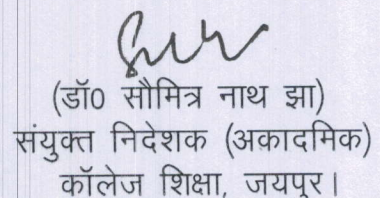 (डॉ0 सौमित्र नाथ झा)
संयुक्त निदेशक (अकादमिक)
कॉलेज शिक्षा, जयपुर।